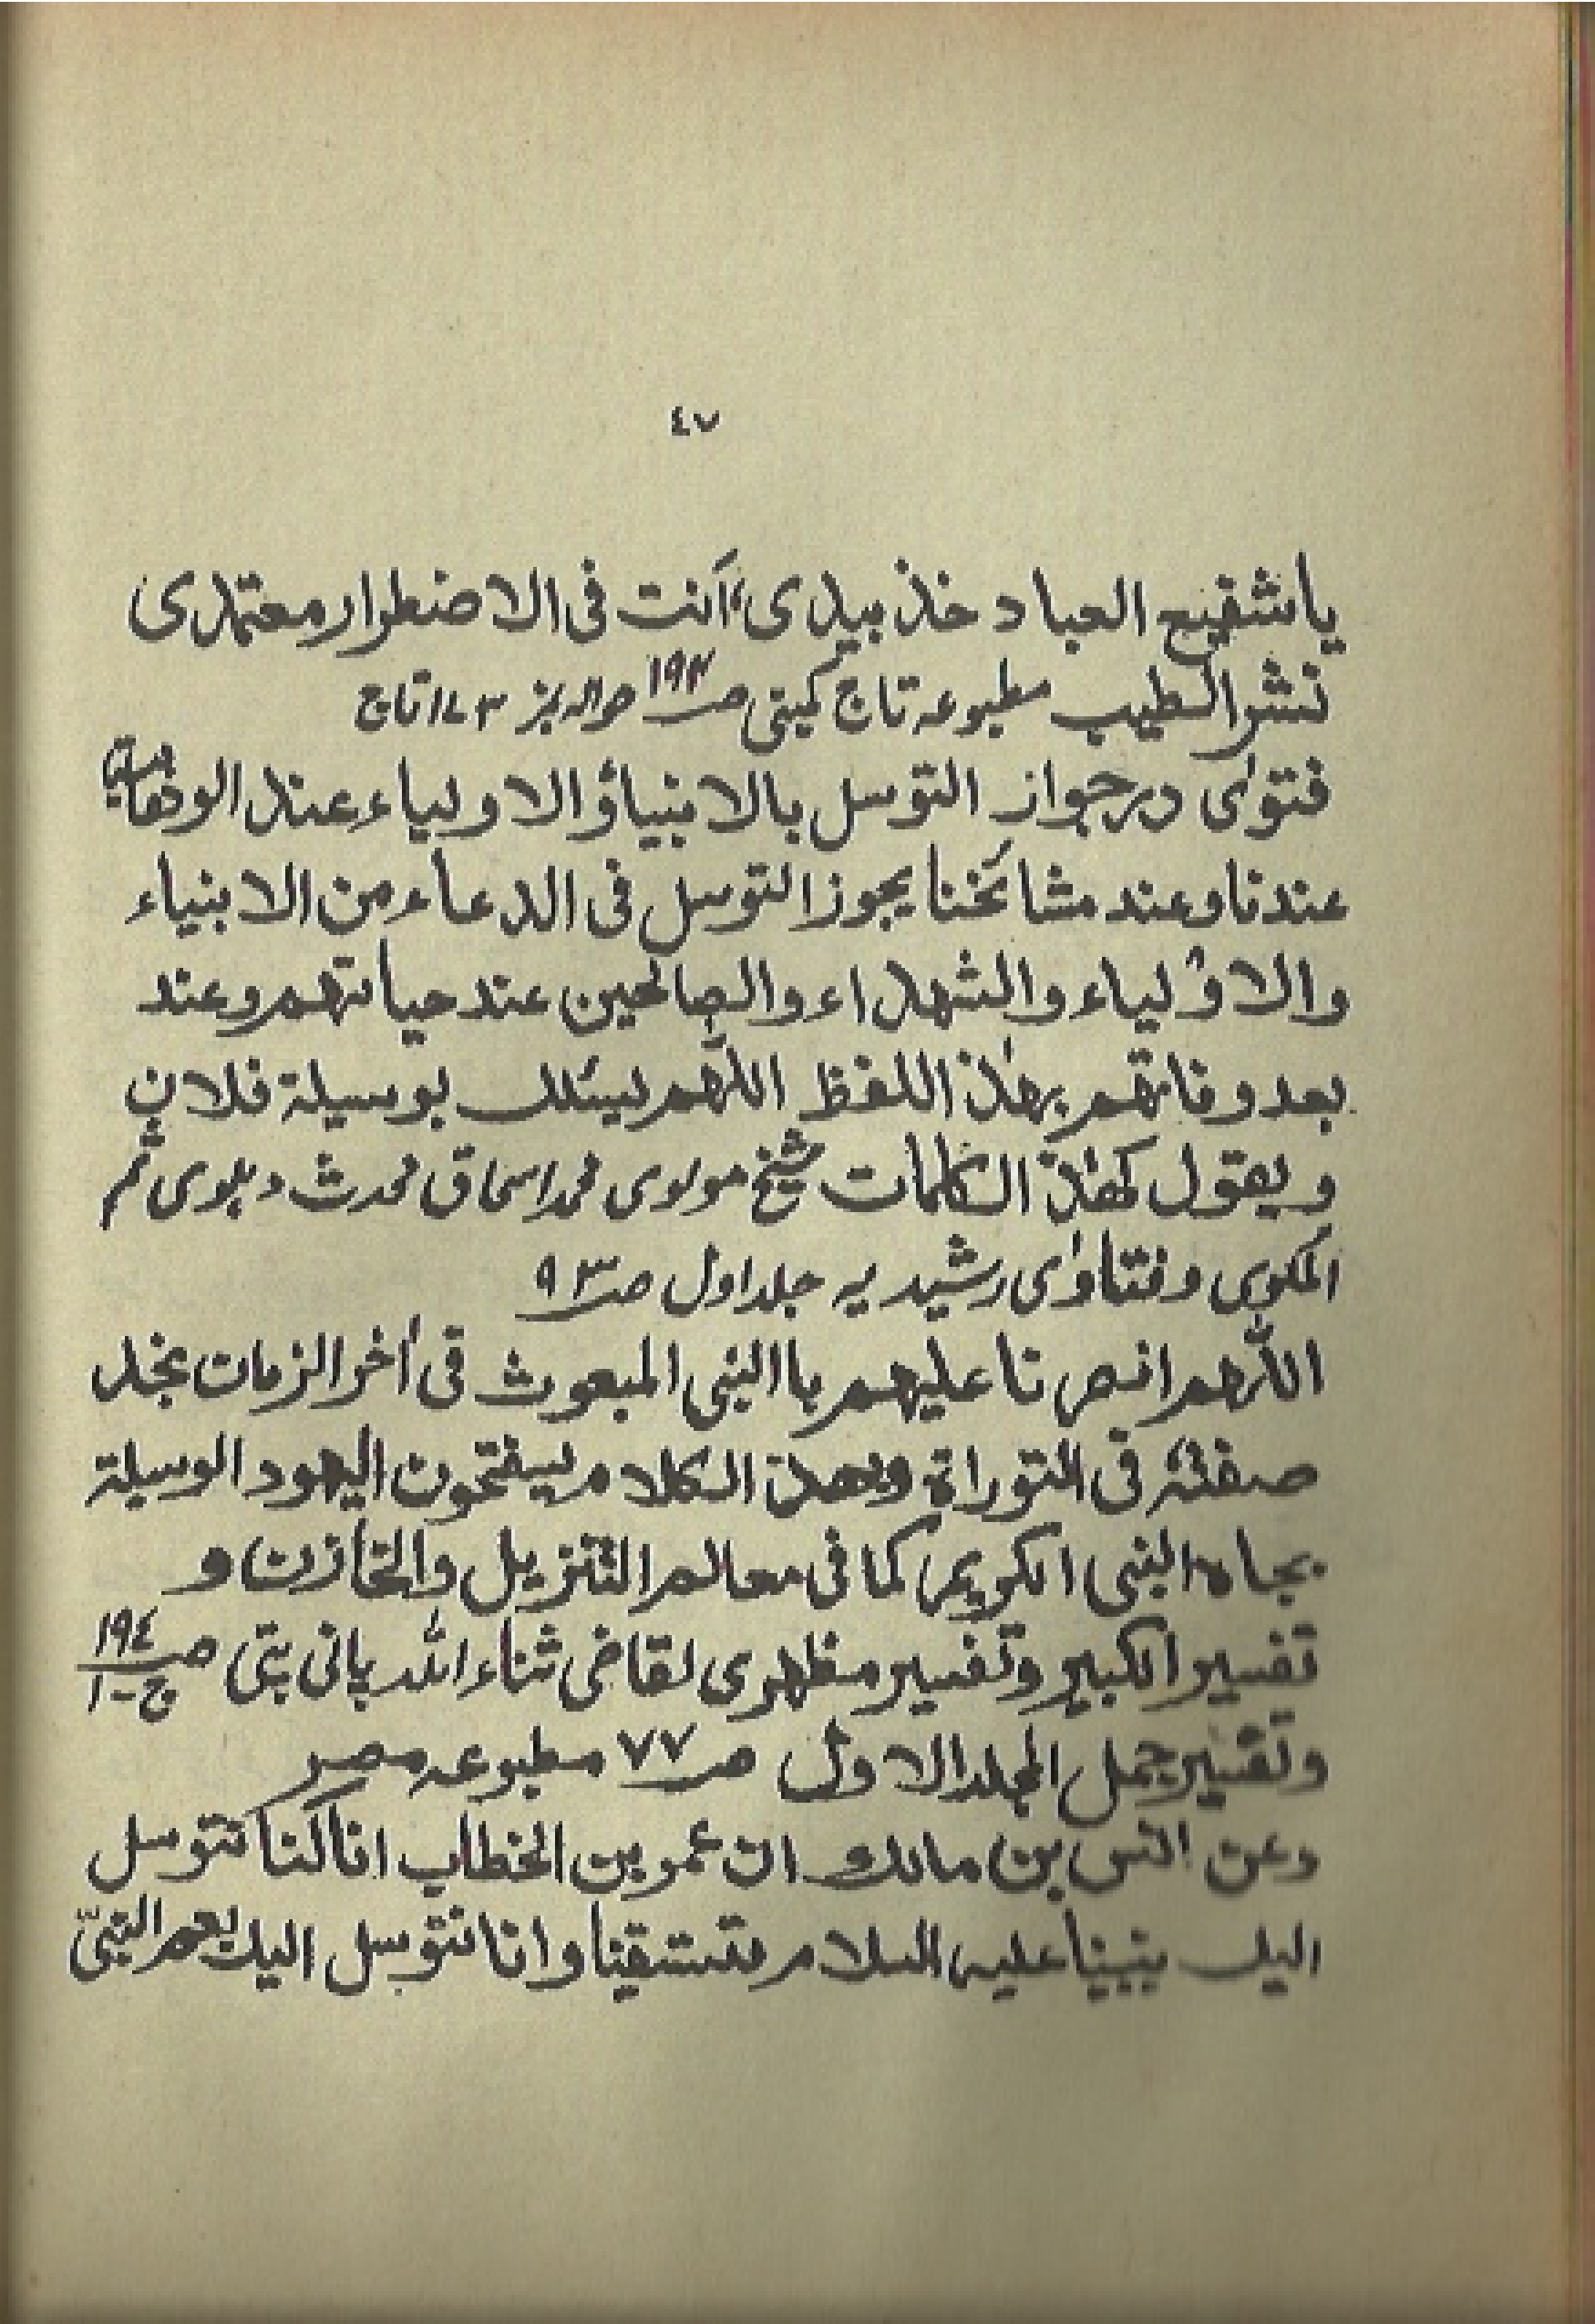 ٤٧
يا شفيع العباد خذ بيدى، أنت فى الاضطرار معتمدى
نشر الطيب مطبوعہ تاج کمپنی صـ ۱۹۴ تاج
فتوٰى در جواز التوسل بالانبياؤ الاولياء عند
عندنا وعند مشائخنا يجوز التوسل فى الدعاء من الانبياء
والاؤلياء والشهداء والصالحين عند حياتهم وعند
بعد وفاتهم بهٰذ اللفظ اللّٰهم ليسئلك بوسيلة فلان
ويقول كهٰذ الكلمات شیخ مولوی محمد اسحاق محدث دہلوی ثم
المکوی وفتاوٰى رشیدیہ جلد اول صـ ٩٣
اللّٰهم انصرنا عليهم باالنبى المبعوث فى أخر الزمان نجد
صفتہٗ فى التوراة وبهذ الكلام ليفتحون اليهود الوسيلة
بجاه النبى الكريم كما فى معالم التنزيل والخازن و
تفسير الكبير وتفسير مظهرى لقاضى ثناء الله پانى پتى صـ ١٩٤ ج-١
وتفسير جمل المجلد الاول صـ ٧٧ مطبوعہ مصر
وعن انس بن مالك ان عمر بن الخطاب انا كنا نتوسل
اليك بنبينا عليہ السلام فتسقينا وانا نتوسل اليك بعم النبىّ